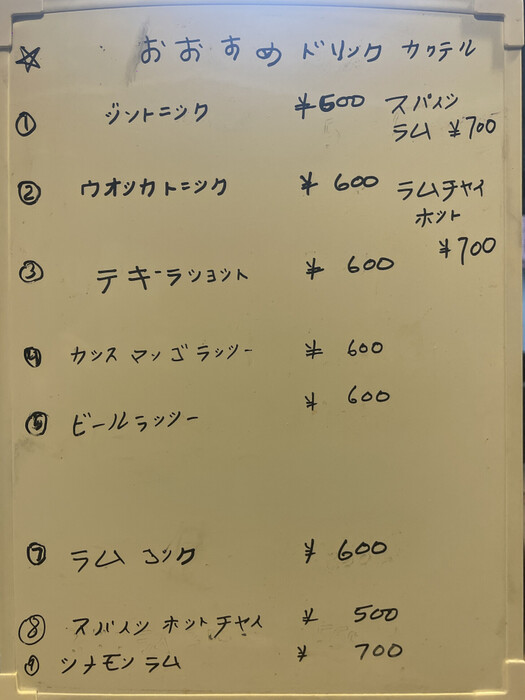 ☆ おおすめ ドリンク カクテル
① ジントニック ¥500
スパイシ
ラム ¥700
② ウオッカトニック ¥ 600
ラムチャイ
ホット
¥700
③ テキーラショット ¥ 600
④ カシス マンゴラッシー ¥ 600
⑤ ビールラッシー ¥ 600
⑦ ラム コック ¥ 600
⑧ スパイシ ホットチャイ ¥ 500
⑨ シナモン ラム ¥ 700